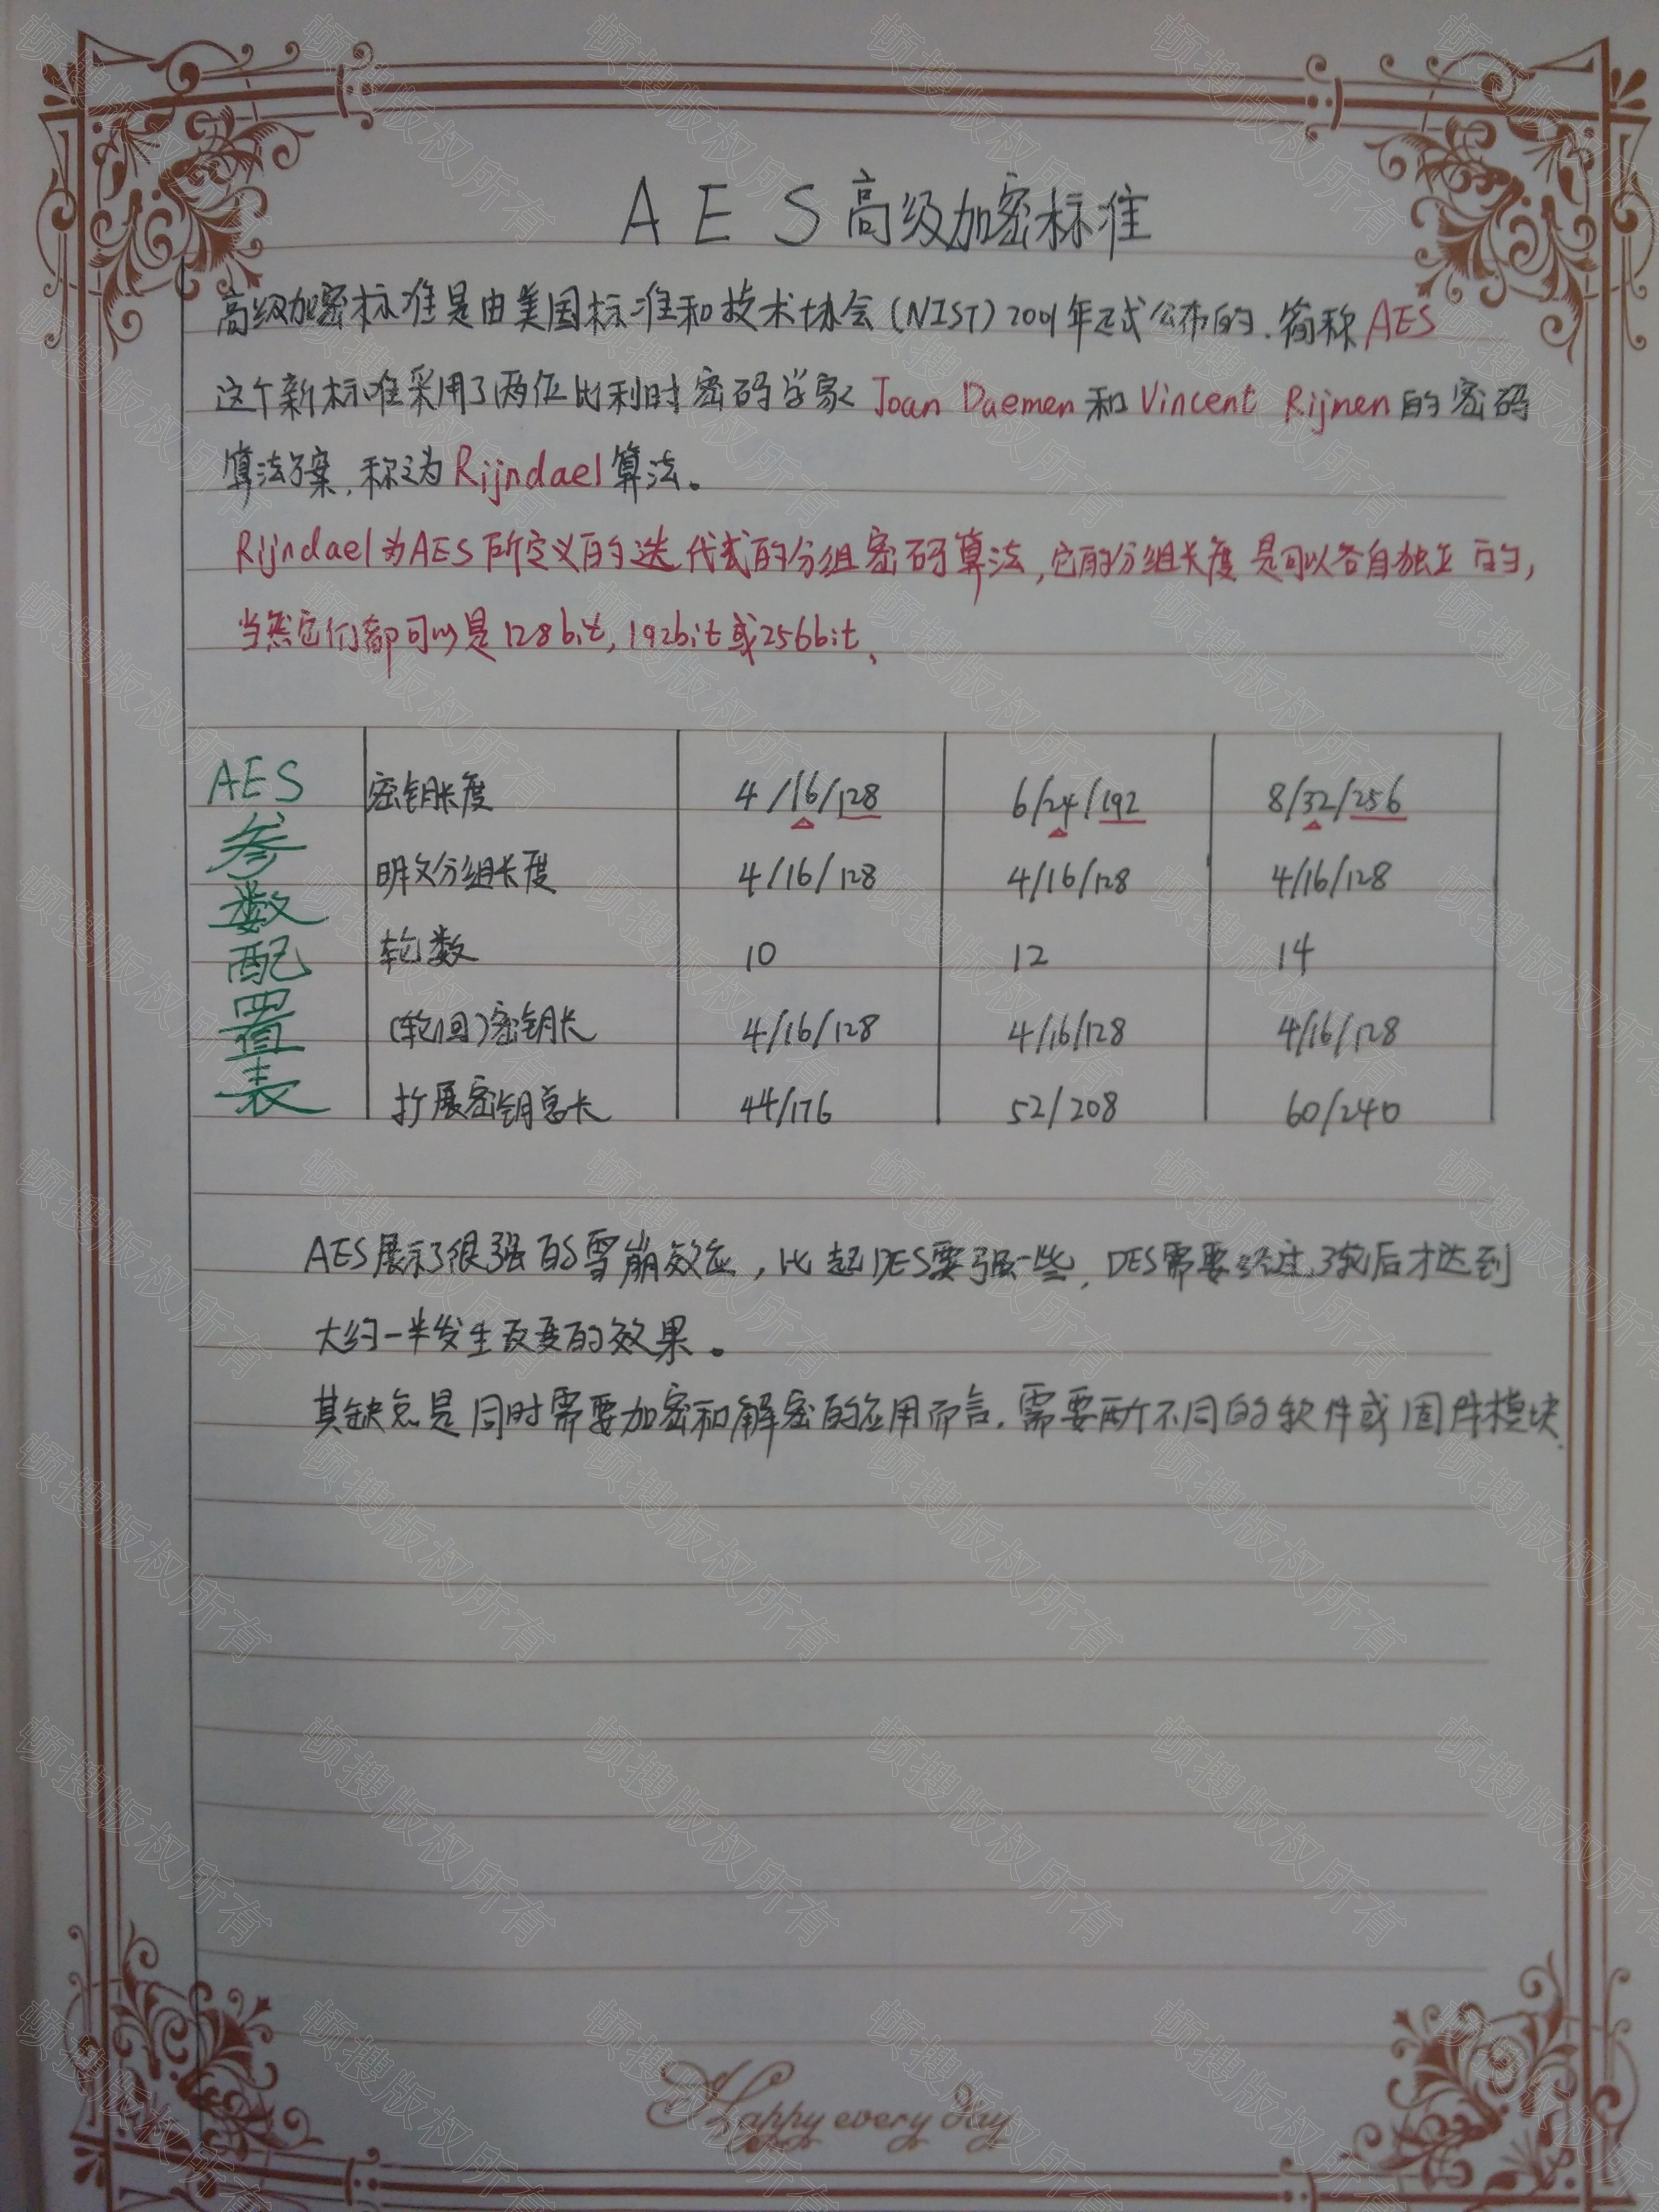 AES高级加密标准
高级加密标准是由美国标准和技术协会(NIST)2001年正式公布的.简称AES
这个新标准采用了两位比利时密码学家Joan Daemen和Vincent Rijnen的密码
算法方案,称之为Rijndael算法。
Rijndael为AES所定义的迭代式的分组密码算法,它的分组长度是可以各自独立的,
当然它们都可以是128bit,192bit或256bit、
AES参数配置表
密钥长度 4/16/128 6/24/192 8/32/256
明文分组长度 4/16/128 4/16/128 4/16/128
轮数 10 12 14
(轮回)密钥长 4/16/128 4/16/128 4/16/128
扩展密钥总长 44/176 52/208 60/240
AES展示了很强的雪崩效应,比起DES要强一些,DES需要经过3轮后才达到
大约一半发生改变的效果。
其缺点是同时需要加密和解密的应用而言.需要两个不同的软件或固件模块.
Happy every day
顿搜版权所有